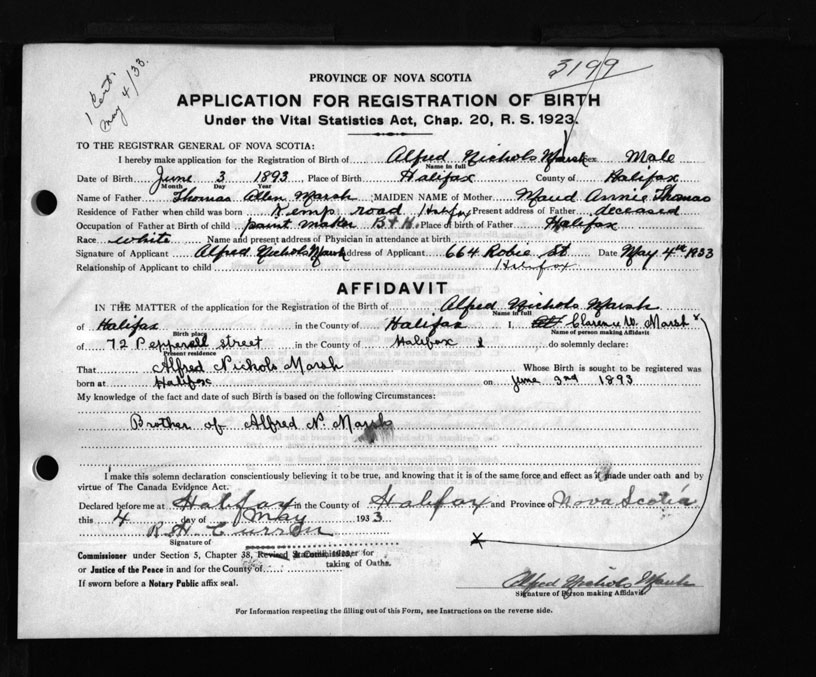 3199
1 Cert.
May 4/33.
PROVINCE OF NOVA SCOTIA
APPLICATION FOR REGISTRATION OF BIRTH
Under the Vital Statistics Act, Chap. 20, R. S. 1923.
TO THE REGISTRAR GENERAL OF NOVA SCOTIA:
I hereby make application for the Registration of Birth of Alfred Nichols Marsh Sex Male
Name in full
Date of Birth June 3 1893 Place of Birth Halifax County of Halifax
Month Day Year
Name of Father Thomas Allen Marsh MAIDEN NAME of Mother Maud Annie Thomas
Residence of Father when child was born Kemp road Halifax Present address of Father deceased
Occupation of Father at Birth of child paint maker B+H. Place of birth of Father Halifax
Race white Name and present address of Physician in attendance at birth
Signature of Applicant Alfred Nichols Marsh Address of Applicant 664 Robie St Date May 4th 1933
Relationship of Applicant to child Halifax
AFFIDAVIT
IN THE MATTER of the application for the Registration of the Birth of Alfred Nichols Marsh
Name in full
of Halifax in the County of Halifax I, Clarence W. Marsh x
Birth place Name of person making Affidavit
of 72 Pepperell street in the County of Halifax do solemnly declare:
Present residence
That Alfred Nichols Marsh Whose Birth is sought to be registered was
born at Halifax on June 3rd 1893
My knowledge of the fact and date of such Birth is based on the following Circumstances:
Brother of Alfred N. Marsh
I make this solemn declaration conscientiously believing it to be true, and knowing that it is of the same force and effect as if made under oath and by
virtue of The Canada Evidence Act.
Declared before me at Halifax in the County of Halifax and Province of Nova Scotia
this 4 day of May 1933
R H Curren
Signature of
Commissioner under Section 5, Chapter 38, Revised for
or Justice of the Peace in and for the County of taking of Oaths.
If sworn before a Notary Public affix seal.
x
Alfred Nichols Marsh
Signature of Person making Affidavit
For Information respecting the filling out of this Form, see Instructions on the reverse side.